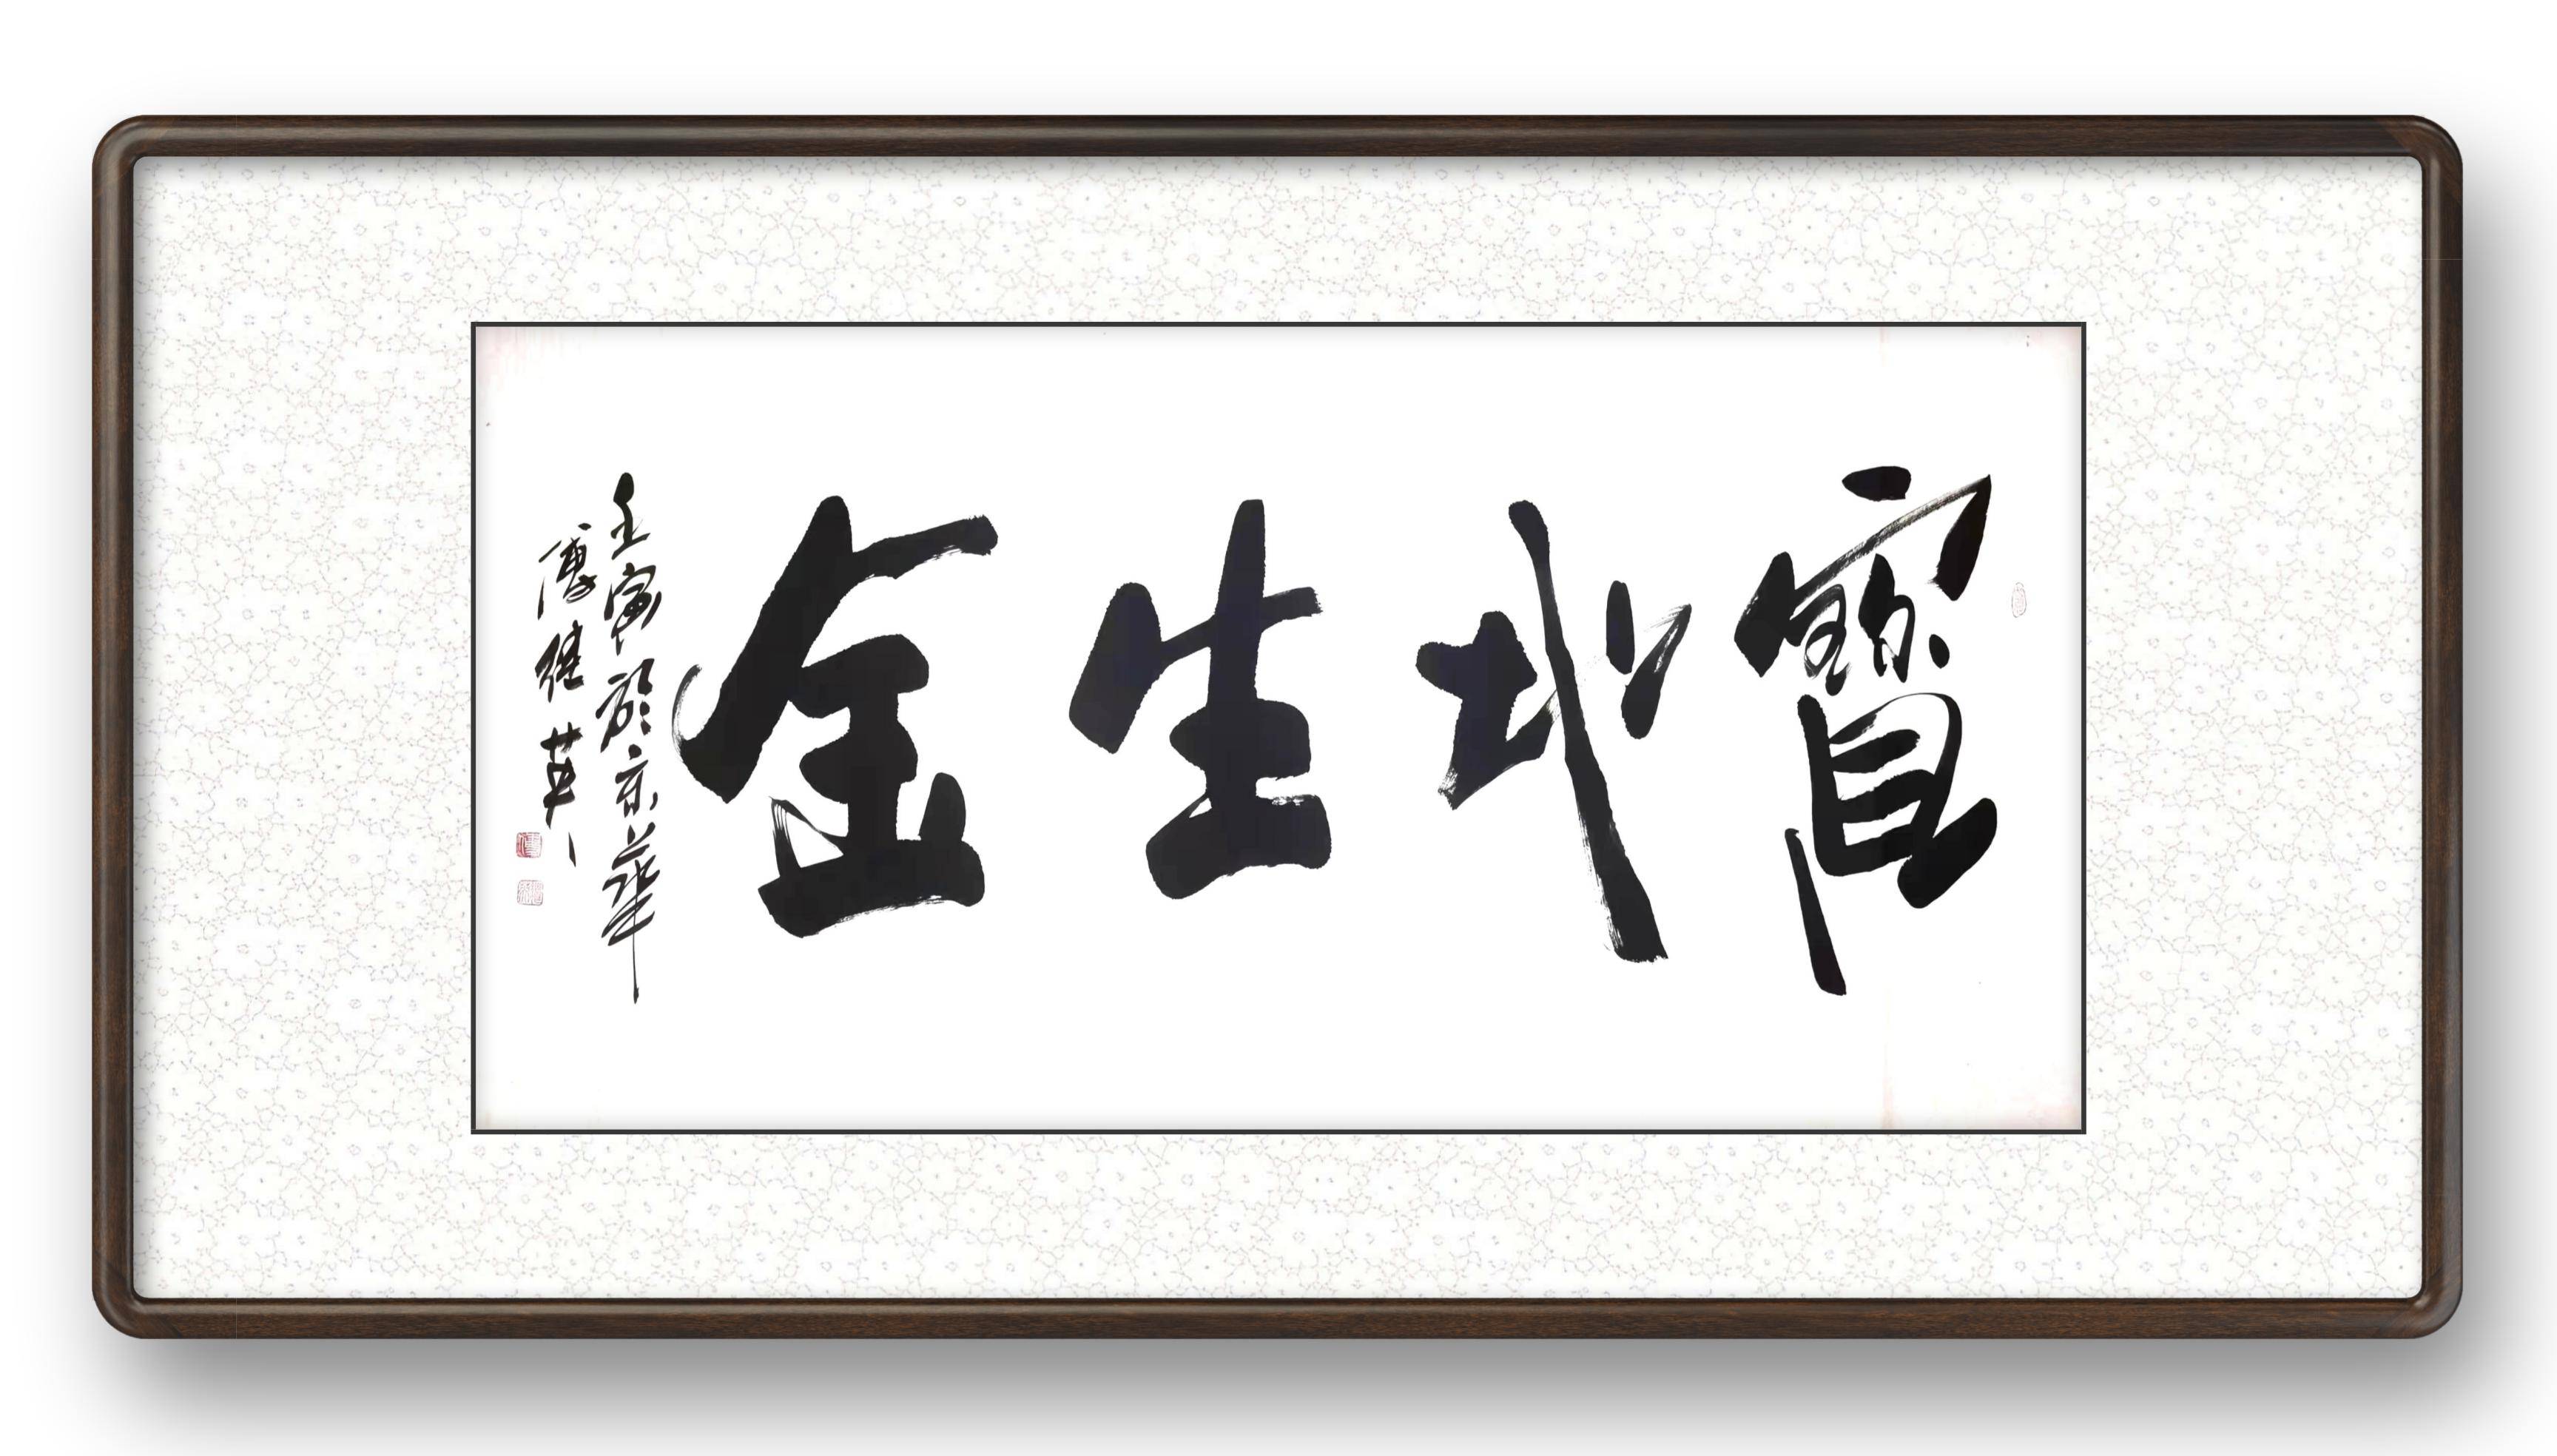 寶地生金
壬寅於京華
傅繼英